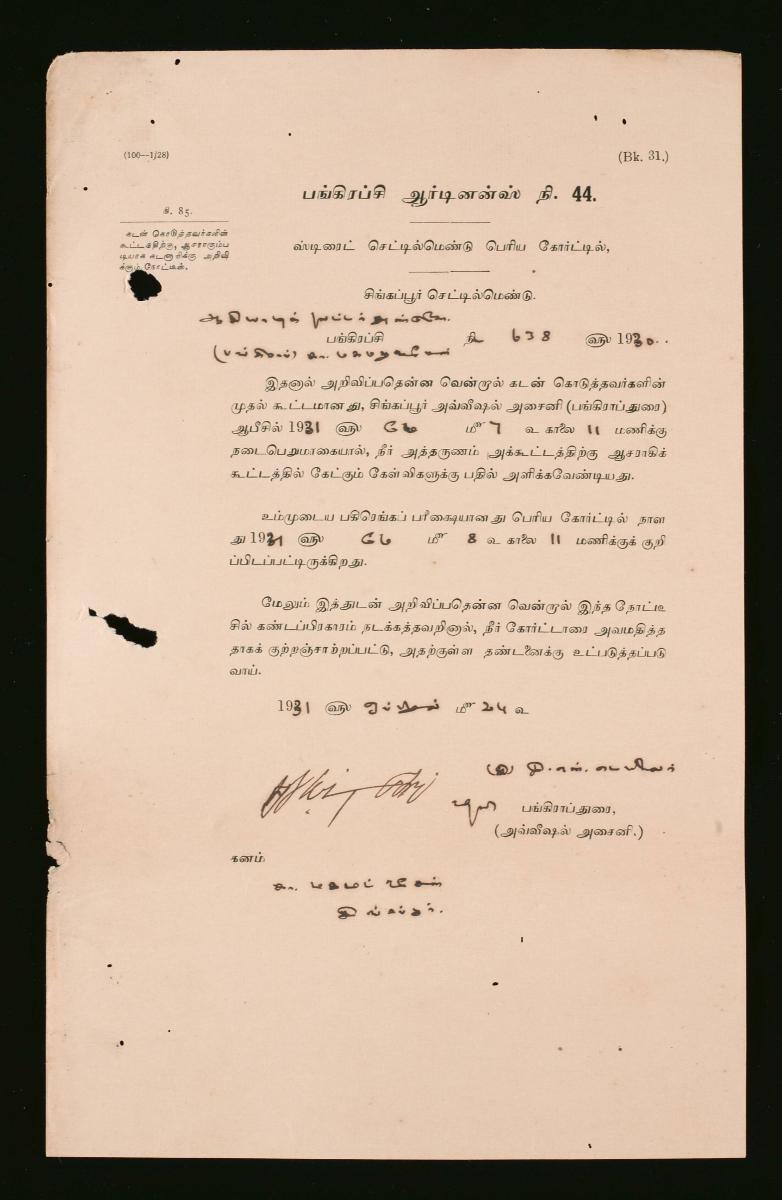 (100—1/28)
(Bk. 31.)
பங்கிரப்சி ஆர்டினன்ஸ் நி. 44.
கி. 85.
கடன் கொடுத்தவர்களின்
கூட்டத்திற்கு, ஆசராகும்ப
டியாக கடனாரிக்கு அறிவி
க்கும் நோட்டீஸ்.
ஸ்டிரைட் செட்டில்மெண்டு பெரிய கோர்ட்டில்,
சிங்கப்பூர் செட்டில்மெண்டு.
பங்கிரப்சி நி 638 ௵ 1930
இதனால் அறிவிப்பதென்ன வென்றால் கடன் கொடுத்தவர்களின்
முதல் கூட்டமானது, சிங்கப்பூர் அவ்வீஷல் அசைனி (பங்கிராப்துரை)
ஆபீசில் 1931 ௵ மே ௴ 7 உ காலை 11 மணிக்கு
நடைபெறுமாகையால், நீர் அத்தருணம் அக்கூட்டத்திற்கு ஆசராகிக்
கூட்டத்தில் கேட்கும் கேள்விகளுக்கு பதில் அளிக்கவேண்டியது.
உம்முடைய பகிரெங்கப் பரீக்ஷையானது பெரிய கோர்ட்டில் நாள
து 1931 ௵ மே ௴ 8 உ காலை 11 மணிக்குக் குறி
ப்பிடப்பட்டிருக்கிறது.
மேலும் இத்துடன் அறிவிப்பதென்ன வென்றால் இந்த நோட்டீ
சில் கண்டப்பிரகாரம் நடக்கத்தவறினால், நீர் கோர்ட்டாரை அவமதித்த
தாகக் குற்றஞ்சாற்றப்பட்டு, அதற்குள்ள தண்டனைக்கு உட்படுத்தப்படு
வாய்.
1931 ௵ ஏப்ரல் ௴ 24 உ
பங்கிராப்துரை,
(அவ்வீஷல் அசைனி.)
கனம்